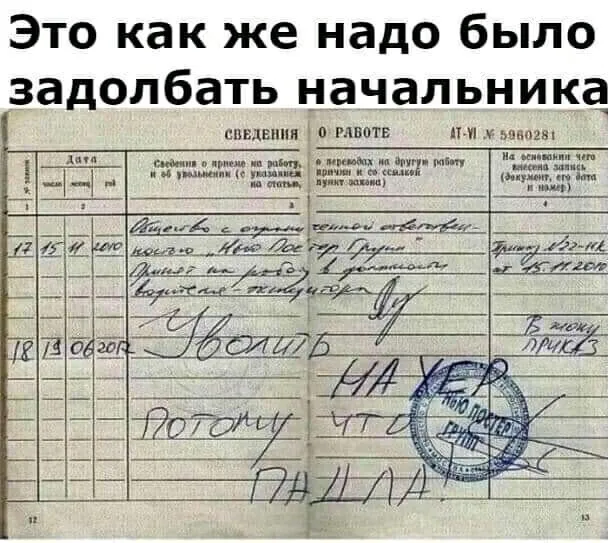 Это как же надо было
задолбать начальника
СВЕДЕНИЯ О РАБОТЕ
АТ-VI № 5960281
№ записи
Дата
число месяц год
Сведения о приеме на работу, о переводах на другую работу
и об увольнении (с указанием причин и со ссылкой
на статью, пункт закона)
На основании чего
внесена запись
(документ, его дата
и номер)
1 2 3 4
Общество с ограниченной ответствен-
17 15 11 2010 ностью „Нью Постер Групп" Приказ №22-НК
Принят на работу в должности от 15.11.2010
водителя-экспедитора
18 19 06 2017 Уволить В жопу
ПРИКАЗ
НАХЕР
НЬЮ ПОСТЕР
ГРУПП
Потому что
ПАДЛА!
12 13